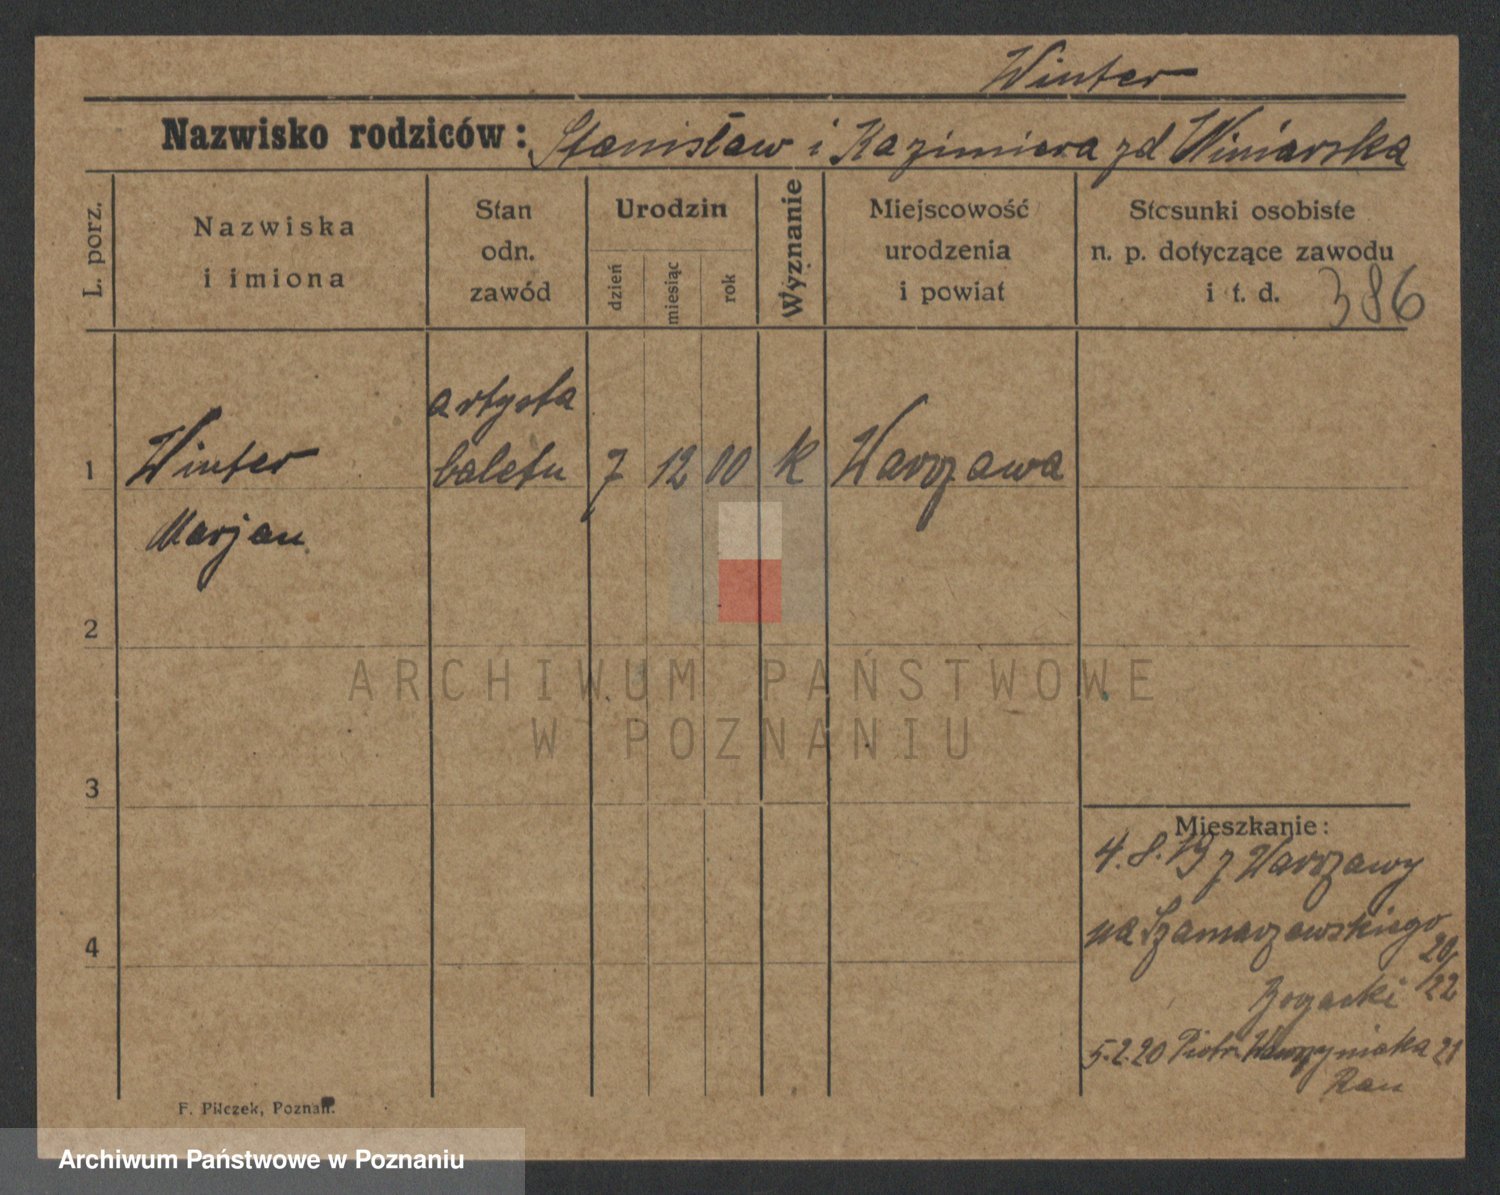 Winter
Nazwisko rodziców: Stanisław i Kazimiera zd Winiarska
L. porz.
Nazwiska
i imiona
Stan
odn.
zawód
Urodzin
dzień
miesiąc
rok
Wyznanie
Miejscowość
urodzenia
i powiat
Stosunki osobiste
n. p. dotyczące zawodu
i t. d.
386
artysta
1 Winter baletu 7 12 00 k Warszawa
Marjan
2
ARCHIWUM PAŃSTWOWE
W POZNANIU
3
Mieszkanie:
4. 8. 19 z Warszawy
na Szamarzewskiego
20/22
4
5.2.20 Piotra Wawrzyniaka 21
Rau
F. Pilczek, Poznań.
Archiwum Państwowe w Poznaniu